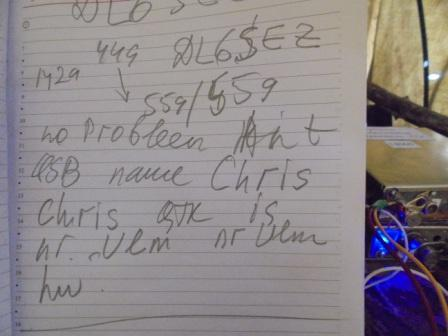 DL6SEZ
449 DL6SEZ
1429
559/559
no Probleen Ant
QSB name Chris
Chris QTH is
nr. Ulm nr Ulm
hw.